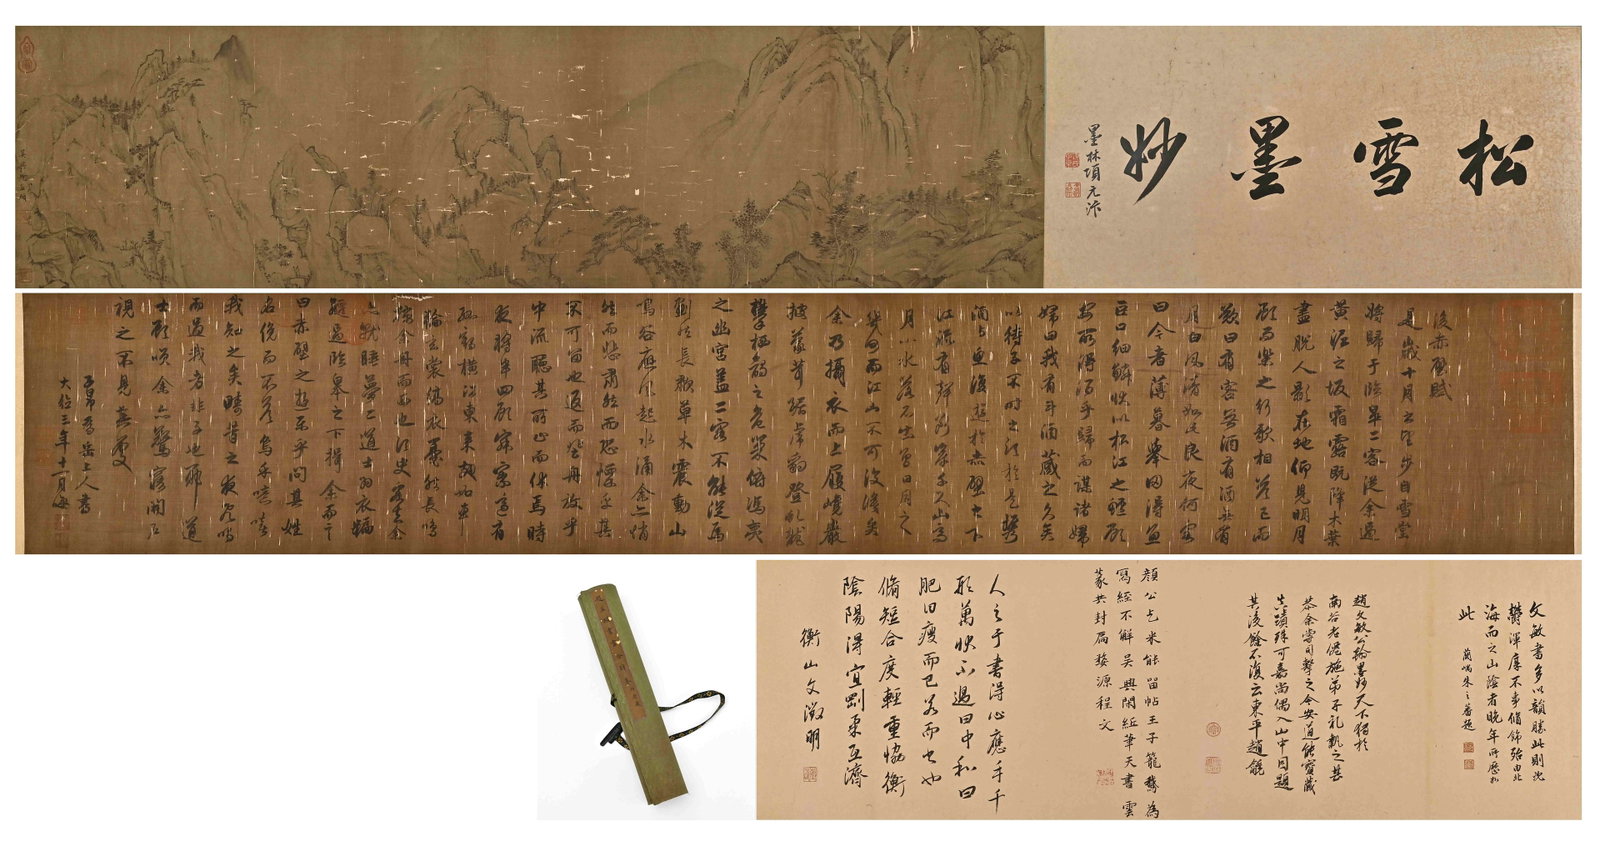 松雪墨妙
墨林項元汴
後赤壁賦
是歲十月之望步自雪堂
將歸于臨皋二客從余過
黃泥之坂霜露既降木葉
盡脫人影在地仰見明月
顧而樂之行歌相答已而
歎曰有客無酒有酒無肴
月白風清如此良夜何客
曰今者薄暮舉網得魚
巨口細鱗狀似松江之鱸顧
安所得酒乎歸而謀諸婦
婦曰我有斗酒藏之久矣
以待子不時之須於是攜
酒與魚復遊於赤壁之下
江流有聲斷岸千尺山高
月小水落石出曾日月之
幾何而江山不可復識矣
余乃攝衣而上履巉巖
披蒙茸踞虎豹登虬龍
攀栖鶻之危巢俯馮夷
之幽宮蓋二客不能從焉
劃然長歗草木震動山
鳴谷應風起水涌余亦悄
然而悲肅然而恐慄乎其
不可留也返而登舟放乎
中流聽其所止而休焉時
夜將半四顧寂寥適有
孤鶴橫江東來翅如車
輪玄裳縞衣戛然長鳴
掠余舟而西也須臾客去余
亦就睡夢二道士羽衣蹁
躚過臨皋之下揖余而言
曰赤壁之遊樂乎問其姓
名俛而不答烏乎噫嘻
我知之矣疇昔之夜飛鳴
而過我者非子也耶道
士顧笑余亦驚寤開戶
視之不見其處
子昂為岳上人書
大德三年十一月
文敏書多以韻勝此則沈
鬱渾厚不事脩飾殆由北
海而之山陰者晚年所歷於
此
蘭嵎朱之蕃題
趙文敏公翰墨妙天下獨於
南谷老僊施弟子禮執之甚
恭余嘗目擊之今安道能寶藏
真蹟殊可嘉尚偶入山中因題
其後餘不復云東平趙
顏公乞米能留帖王子籠鵞為
寫經不解吳興閑紙筆天書雲
篆共封扃婺源程文
人之于書得心應手千
形萬狀不過曰中和曰
肥曰瘦而已若而書也
脩短合度輕重協衡
陰陽得宜剛柔互濟
衡山文徵明